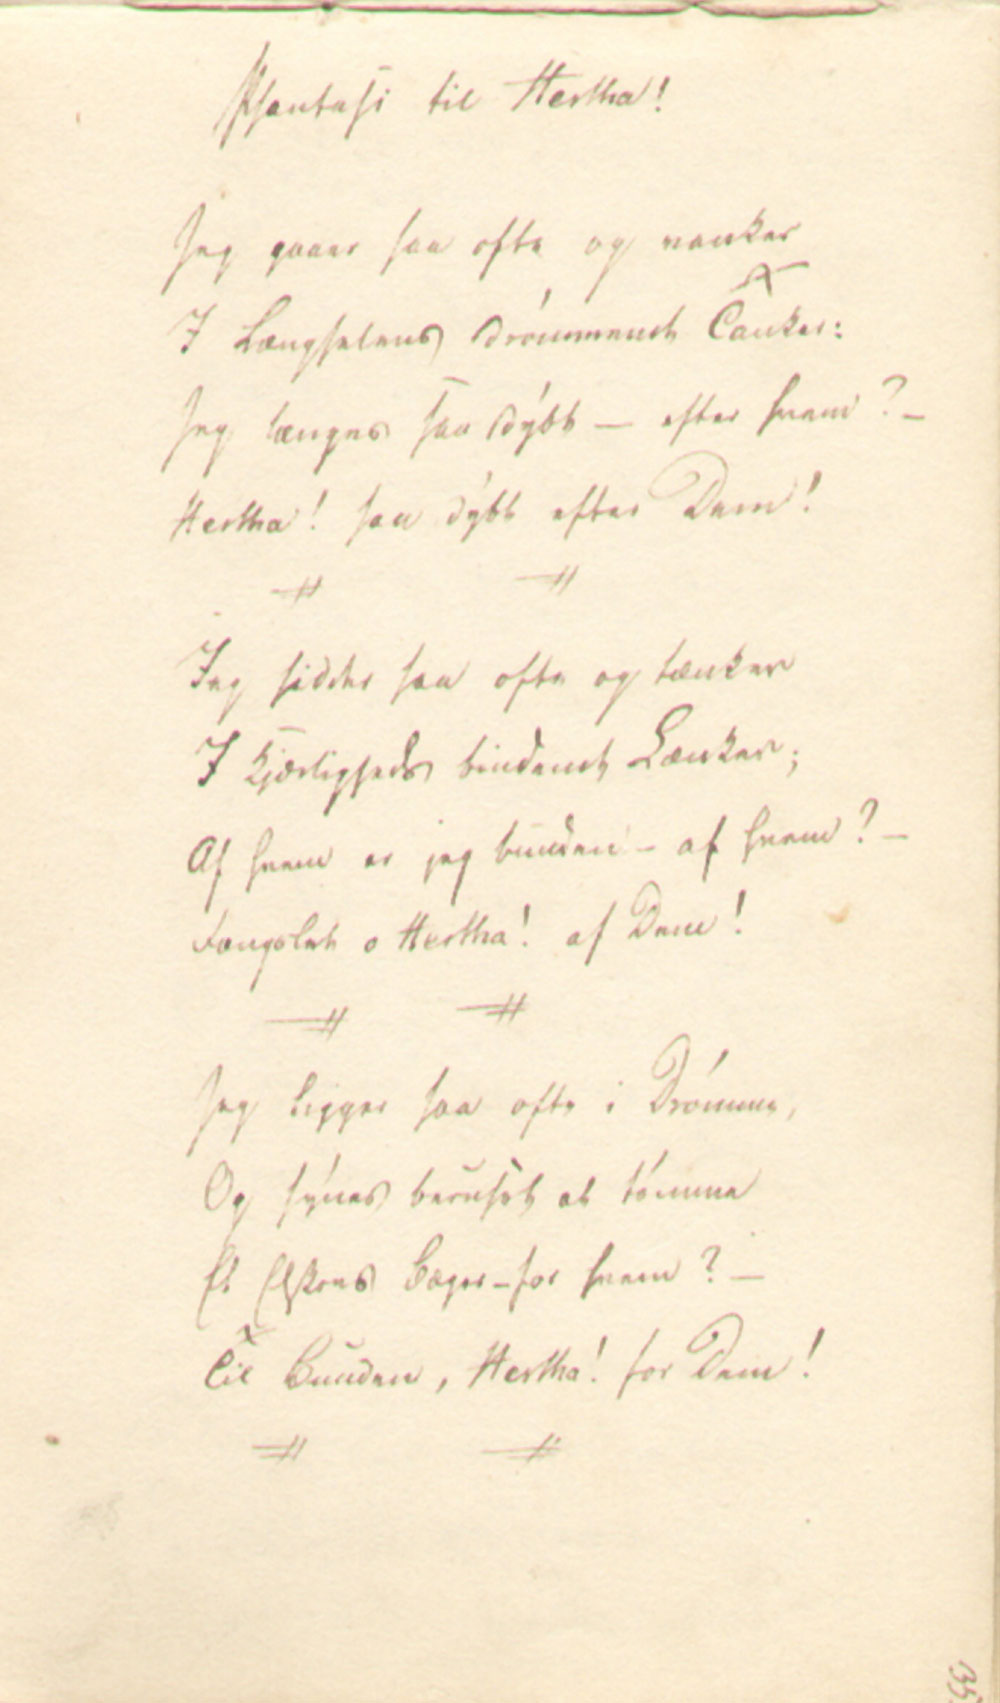 Phantasi til Hertha!
Jeg gaaer saa ofte og vanker
I Længselens drømmende Tanker:
Jeg længes saa dybt — efter hvem? —
Hertha! saa dybt efter Dem!
Jeg sidder saa ofte og tænker
I Kjærligheds bindende Lænker;
Af hvem er jeg bunden – af hvem? —
Fængslet o Hertha! af Dem!
Jeg ligger saa ofte i Drømme,
Og synes beruset at tømme
Et Elskovs Bæger – for hvem? —
Til Bunden, Hertha! for Dem!
35